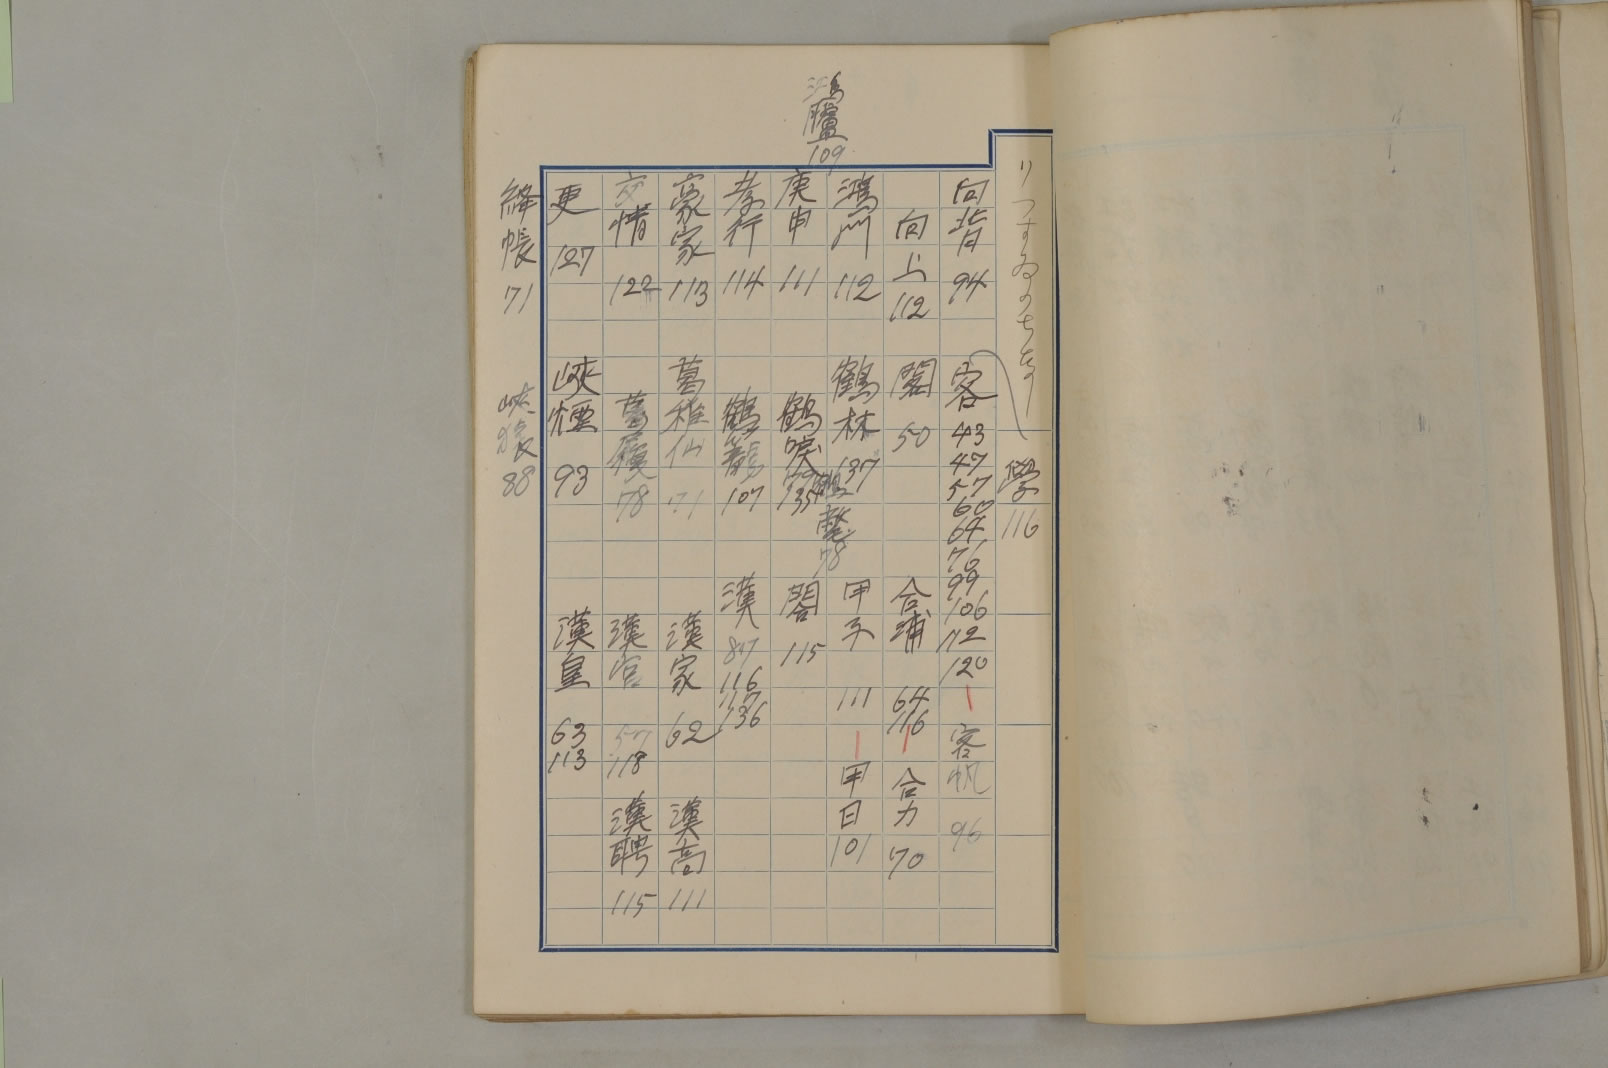 鴻臚 109
學 116
向背 94
客 43 47 57 60 64 76 99 106 112 120
客帆 96
向上 112
閣 50
合浦 64 116
合力 70
鴻門 112
鶴林 137
甲子 111
甲日 101
庚申 111
鶴唳 135
78
閤 115
孝行 114
鶴 107
漢 87 116 117 136
豪家 113
葛稚仙 71
漢家 62
漢高 111
交情 122
葛屨 78
漢官 57 118
漢聘 115
更 127
峽煙 93
漢皇 63 113
絳帳 71
峽猿 88